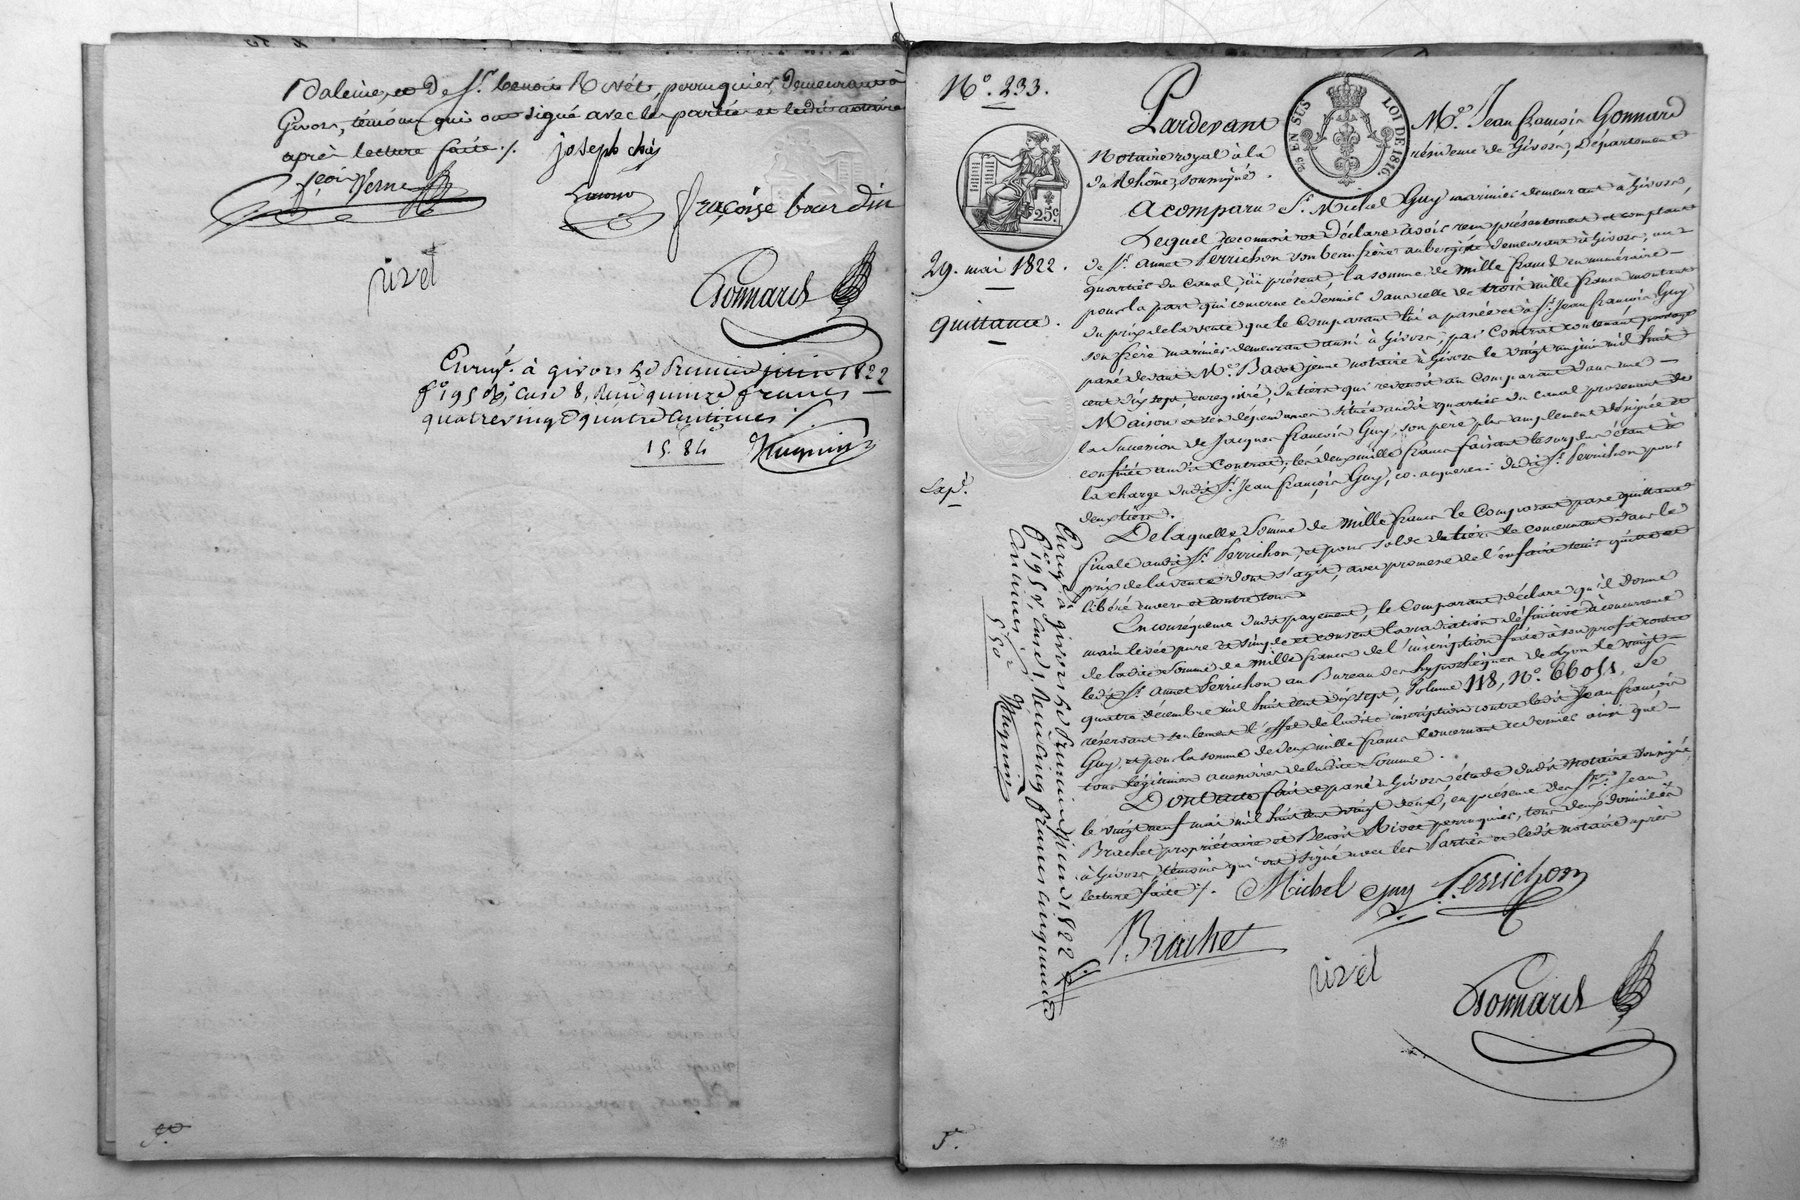 Baleine, et de Sr. benoit Rivet, perruquier, demeurant à
Givors, témoins qui ont signé avec les parties et ledit notaire
après lecture faite ./.
joseph
Verne
fraçoise bourdin
rivet
Gonnard
Enregé. à givors le Premier juin 1822
fo. 195 Vo, case 8, Reçu quinze francs
quatrevingt quatre centimes ./.
15. 84
Huguin
9e.
No. 233.
25 EN SUS
LOI DE 1816.
25c.
29. mai 1822.
quittance.
Exp.
Pardevant Me. Jean françois Gonnard
Notaire royal à la résidence de Givors, Département
du Rhône, soussigné.
A comparu Sr. Michel Guy marinier demeurant à Givors,
Lequel reconnait et déclare avoir reçu présentement et comptant
de Sr. annet Perrichon son beau frère aubergiste demeurant à Givors, au
quartier du Canal, ici présent, la somme de mille francs en numéraire
pour la part qui concerne ce dernier dans celle de trois mille francs montant
du prix de la vente que le Comparant lui a passée et à Sr. Jean françois Guy
son frère marinier demeurant aussi à Givors, par Contrat contenant
passé devant Me. jeune notaire à Givors le vingt un juin mil huit
cent dix sept, enregistré, du tiers qui revenoit au Comparant dans une
Maison et ses dépendances située audit quartier du canal provenant de
la Succession de Jacques françois Guy, son père plus amplement désignée et
confinée audit contrat; les deux mille francs faisant le surplus étant à
la charge dudit Sr. Jean françois Guy, co-acquereur dudit Sr. Perrichon pour
deux tiers.
De laquelle Somme de mille francs le Comparant passe quittance
finale audit Sr. Perrichon, et pour solde du tiers le concernant dans le
prix de la vente dont s'agit, avec promesse de l'en faire tenir quitte et
libéré envers et contre tous.
En conséquence dudit payement, le Comparant déclare qu'il donne
main levée pure et simple et consent la radiation définitive à concurrence
de ladite Somme de mille francs de l'inscription faite à son profit contre
ledit Sr. annet Perrichon au Bureau des hypothèques de Lyon le vingt
quatre décembre mil huit cent dix sept, Volume 118, No. 66051, Se
réservant seulement l'effet de ladite inscription contre ledit Jean françois
Guy, et pour la somme de deux mille francs concernant ce dernier ainsi que
tous légitimes accessoires de ladite Somme.
Dont acte fait et passé à Givors étude dudit notaire soussigné,
le vingt neuf mai mil huit cent vingt deux, en présence des Srs. Jean
Brachet propriétaire et Benoit Rivet perruquier, tous deux domiciliés
à Givors, témoins qui ont signé avec les Parties et ledit notaire après
lecture faite ./.
Michel guy
Perrichon
Brachet
rivet
Gonnard
Enregé. à givors le Premier juin 1822
fo. 195 Vo, case 1, Reçu cinq francs cinquante
centimes
5 50
Huguin
5.